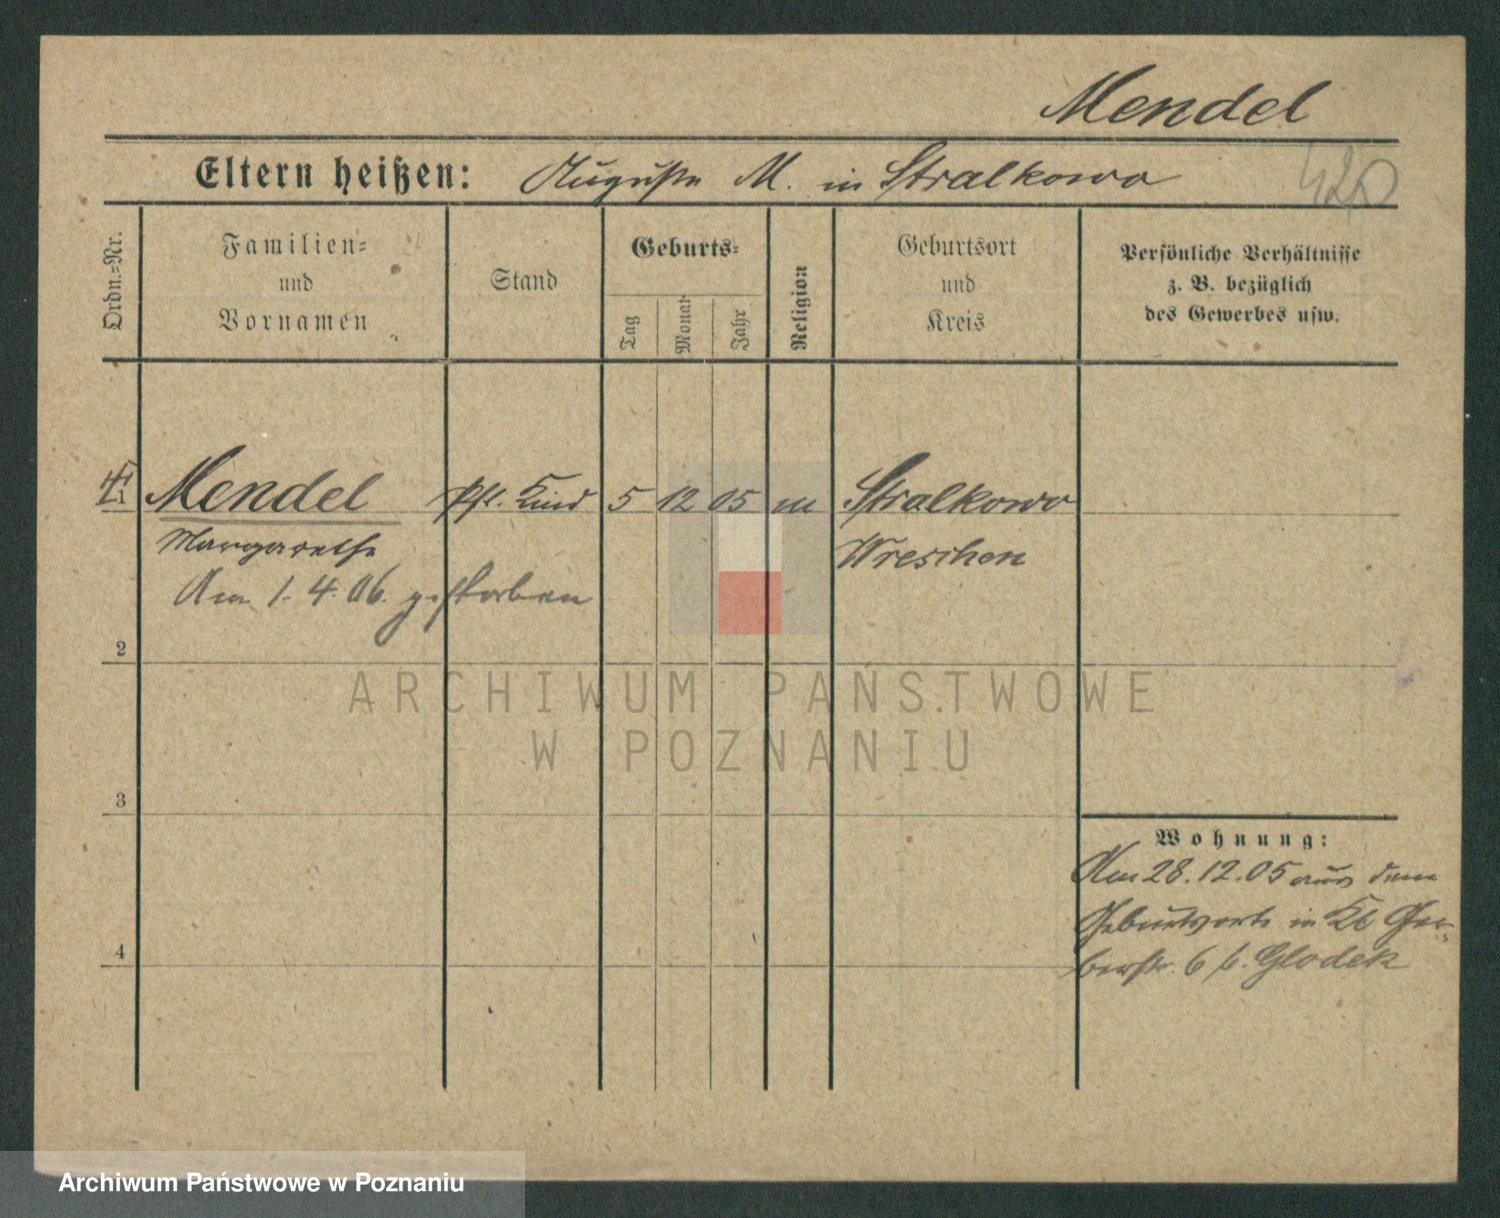 Mendel
Eltern heißen: Auguste M. in Stralkowo
420
Ordn.-Nr.
Familien-
und
Vornamen
Stand
Geburts-
Tag
Monat
Jahr
Religion
Geburtsort
und
Kreis
Persönliche Verhältnisse
z. B. bezüglich
des Gewerbes usw.
Mendel Pfl. Kind 5 12 05 Stralkowo
Margarethe Wreschen
Am 1.4.06. gestorben
2
3
4
Wohnung:
Am 28.12.05 aus dem
Geburtsorte in Kl Ger-
berstr. 6 b. Glodek
ARCHIWUM PAŃSTWOWE
W POZNANIU
Archiwum Państwowe w Poznaniu